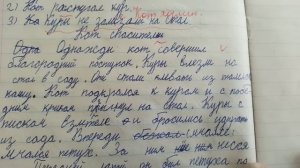 2) Кот распугал кур.
3) Куры не залезали на стол. Кот хозяин.
Кот спаситель
Однажды кот совершил
благородный поступок. Куры влезли на
стол в саду. Они стали клевать из тарелки
кашу. Кот подкрался к курам и с побе-
дным криком прыгнул на стол. Куры с
писком взлетели и бросились удирать
из сада. Впереди
мчался петух. За ним нёсся
кот. он бил петуха по